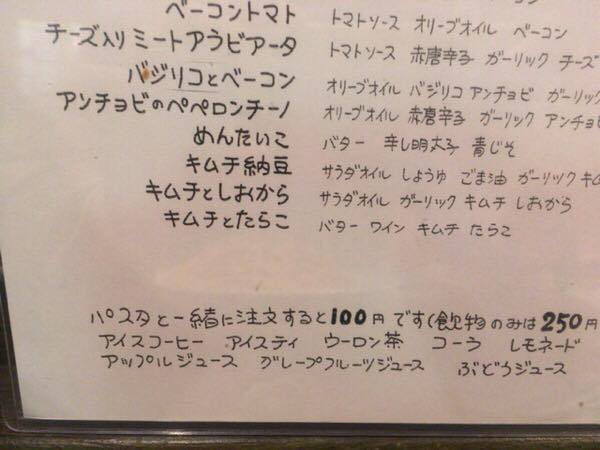 ベーコントマト トマトソース オリーブオイル ベーコン
チーズ入りミートアラビアータ トマトソース 赤唐辛子 ガーリック チーズ
バジリコとベーコン オリーブオイル バジリコ アンチョビ ガーリック
アンチョビのペペロンチーノ オリーブオイル 赤唐辛子 ガーリック アンチョビ
めんたいこ バター 辛し明太子 青じそ
キムチ納豆 サラダオイル しょうゆ ごま油 ガーリック キム
キムチとしおから サラダオイル ガーリック キムチ しおから
キムチとたらこ バター ワイン キムチ たらこ
パスタと一緒に注文すると100円です(飲物のみは250円
アイスコーヒー アイスティ ウーロン茶 コーラ レモネード
アップルジュース グレープフルーツジュース ぶどうジュース